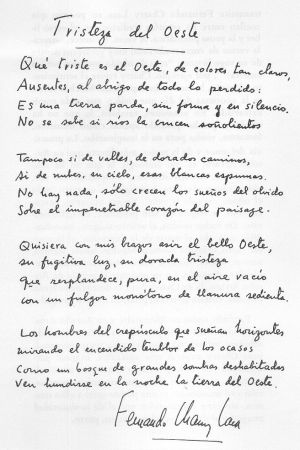 Tristeza del Oeste
Qué triste es el Oeste, de colores tan claros,
Ausentes, al abrigo de todo lo perdido:
Es una tierra parda, sin forma y en silencio.
No se sabe si ríos la crucen soñolientos
Tampoco si de valles, de dorados caminos,
Si de nubes, su cielo, esas blancas espumas.
No hay nada, sólo crecen los sueños del olvido
Sobre el impenetrable corazón del paisaje.
Quisiera con mis brazos asir el bello Oeste,
su fugitiva luz, su dorada tristeza
que resplandece, pura, en el aire vacío
con un fulgor monótono de llanura sedienta.
Los hombres del crepúsculo que sueñan horizontes
mirando el encendido temblor de los ocasos
Como un bosque de grandes sombras deshabitadas
Ven hundirse en la noche la tierra del Oeste.
Fernando Charry Lara